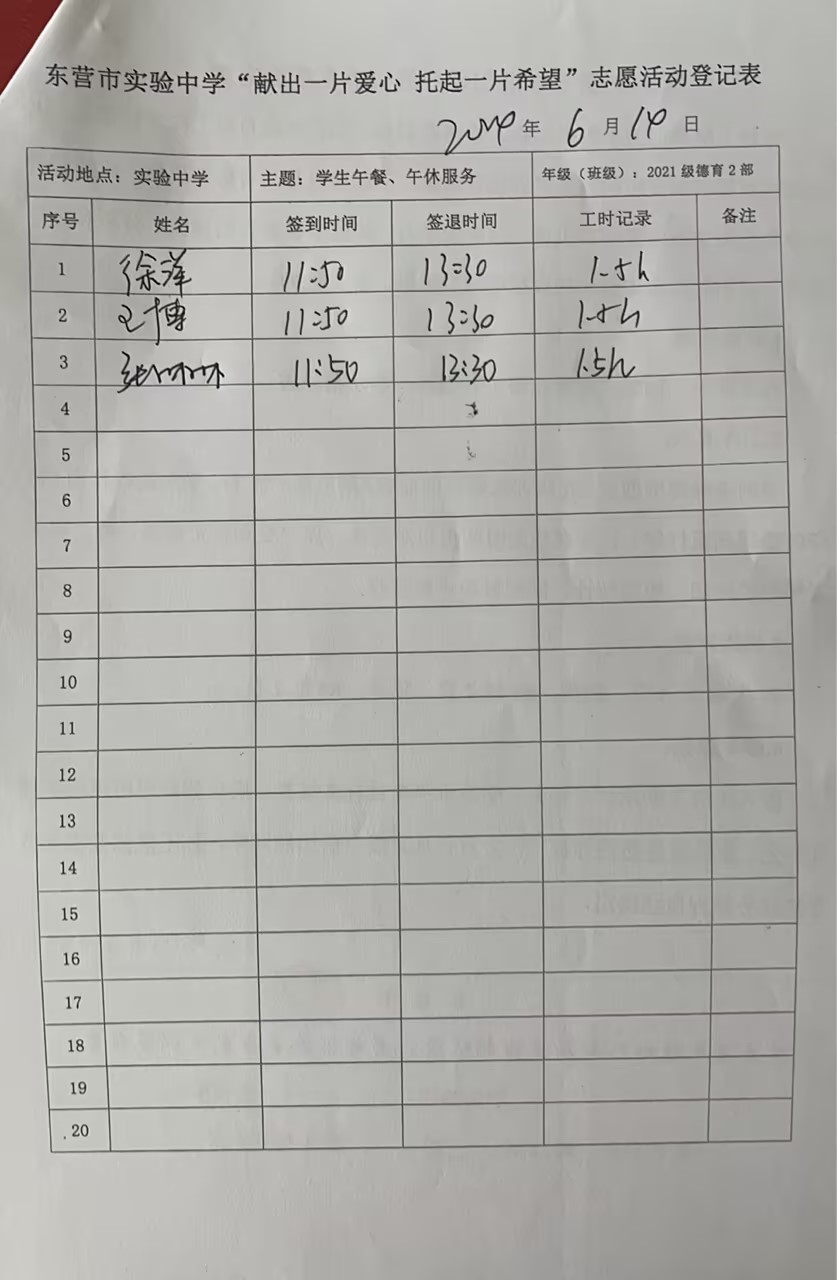 东营市实验中学“献出一片爱心 托起一片希望”志愿活动登记表
2024年 6月14日
活动地点：实验中学 主题：学生午餐、午休服务 年级（班级）：2021级德育2部
序号 姓名 签到时间 签退时间 工时记录 备注
1 徐萍 11:50 13:30 1.5h
2 王博 11:50 13:30 1.5h
3 张林林 11:50 13:30 1.5h
4
5
6
7
8
9
10
11
12
13
14
15
16
17
18
19
20